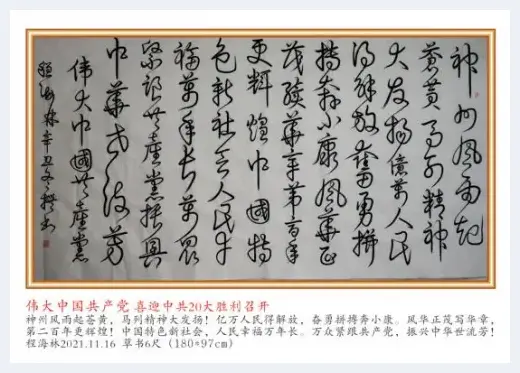 神州風雨起
蒼黄馬列精神
大发揚億萬人民
得解放奮勇拼
搏奔小康風華正
茂 華章第二百年
更輝煌中國特
色新社会人民幸
福萬年长萬眾
緊跟共產黨振興
中華世流芳
偉大中國共產黨
程海林辛丑冬 书
伟大中国共产党 喜迎中共20大胜利召开
神州风雨起苍黄，马列精神大发扬！亿万人民得解放，奋勇拼搏奔小康。风华正茂写华章，
第二百年更辉煌！中国特色新社会，人民幸福万年长。万众紧跟共产党，振兴中华世流芳！
程海林2021.11.16 草书6尺（180*97cm）